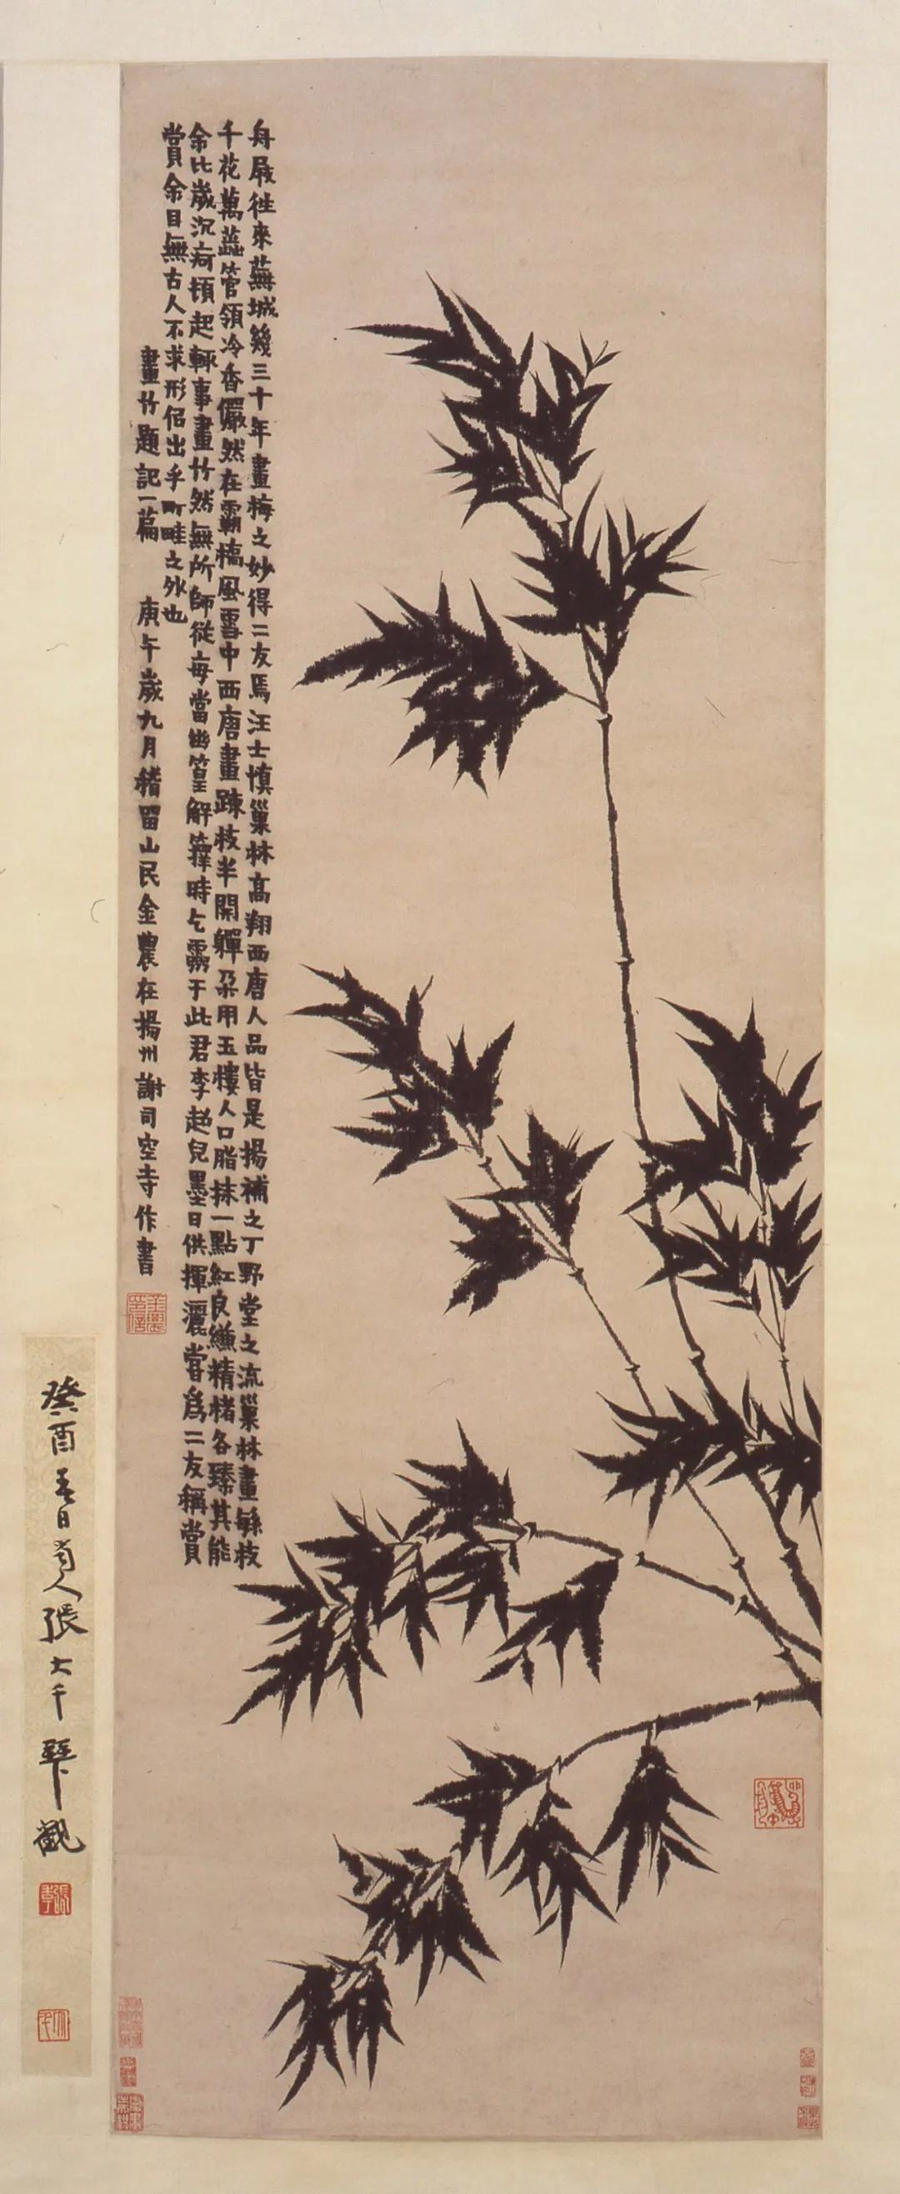 舟屐往來蕪城幾三十年畫梅之妙得二友焉汪士慎巢林高翔西唐人品皆是揚補之丁野堂之流巢林畫緐枝
千花萬蕊管領冷香儼然在霸橋風雪中西唐畫疎枝半開嚲朵用玉樓人口脂抹一點紅良縑精楮各臻其能
余比歲沉疴頓起輒事畫竹然無所師從每當幽篁解籜時乞靈于此君李趙兒墨日供揮灑嘗爲二友稱賞
賞余目無古人不求形侣出乎町畦之外也
畫竹題記一篇 庚午歲九月稽留山民金農在揚州謝司空寺作書
癸酉 日 人張大千 觀